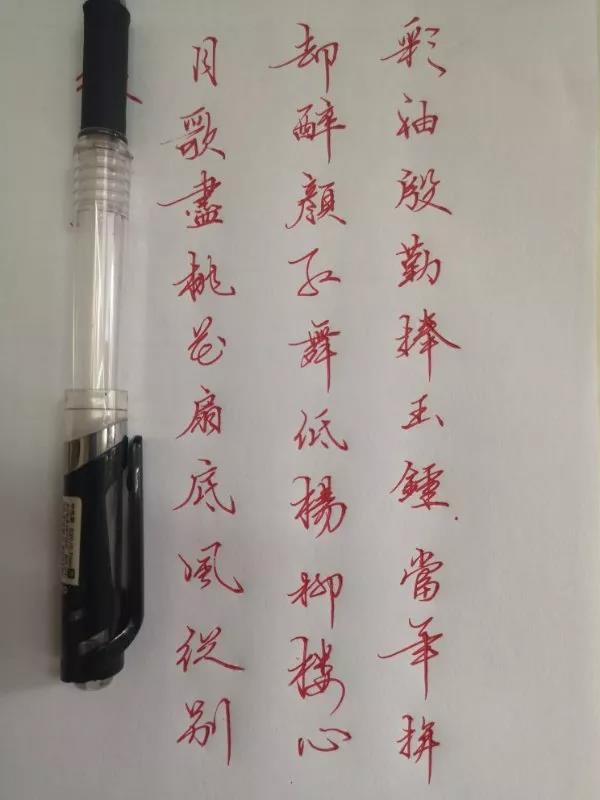 彩袖殷勤捧玉鍾.當年拚
却醉顏紅舞低楊柳樓心
月歌盡桃花扇底風從別